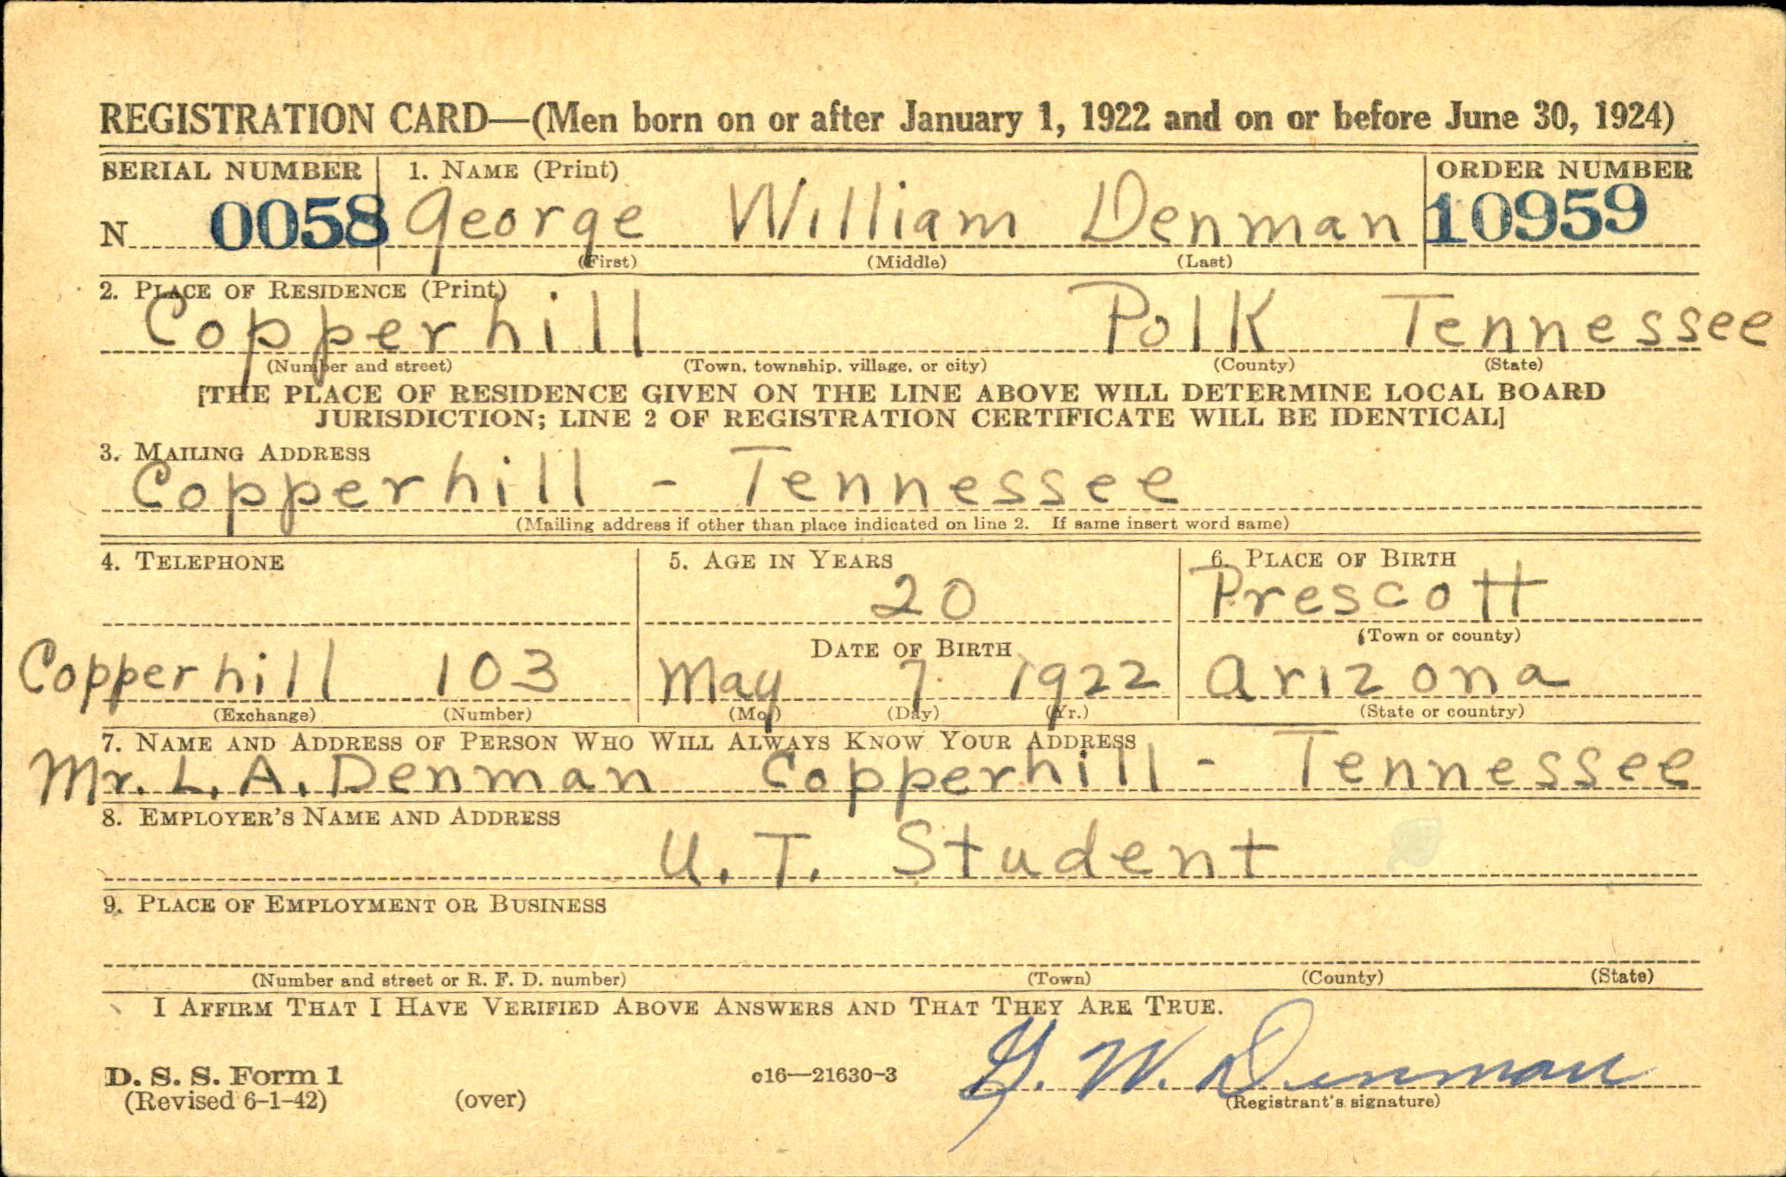 REGISTRATION CARD—(Men born on or after January 1, 1922 and on or before June 30, 1924)
SERIAL NUMBER 1. NAME (Print) ORDER NUMBER
N 0058 George William Denman 10959
(First) (Middle) (Last)
2. PLACE OF RESIDENCE (Print)
Copperhill Polk Tennessee
(Number and street) (Town, township, village, or city) (County) (State)
[THE PLACE OF RESIDENCE GIVEN ON THE LINE ABOVE WILL DETERMINE LOCAL BOARD
JURISDICTION; LINE 2 OF REGISTRATION CERTIFICATE WILL BE IDENTICAL]
3. MAILING ADDRESS
Copperhill - Tennessee
(Mailing address if other than place indicated on line 2. If same insert word same)
4. TELEPHONE 5. AGE IN YEARS 6. PLACE OF BIRTH
20 Prescott
DATE OF BIRTH (Town or county)
Copperhill 103 May 7 1922 Arizona
(Exchange) (Number) (Mo.) (Day) (Yr.) (State or country)
7. NAME AND ADDRESS OF PERSON WHO WILL ALWAYS KNOW YOUR ADDRESS
Mr. L. A. Denman Copperhill - Tennessee
8. EMPLOYER'S NAME AND ADDRESS
U. T. Student
9. PLACE OF EMPLOYMENT OR BUSINESS
(Number and street or R. F. D. number) (Town) (County) (State)
I AFFIRM THAT I HAVE VERIFIED ABOVE ANSWERS AND THAT THEY ARE TRUE.
D. S. S. Form 1 c16—21630-3 G. W. Denman
(Revised 6-1-42) (over) (Registrant's signature)